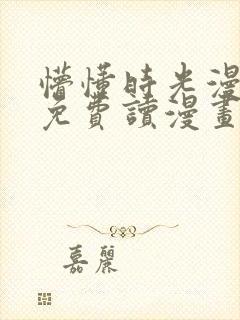 懵懂時光漫
免費讀漫畫
嘉麗